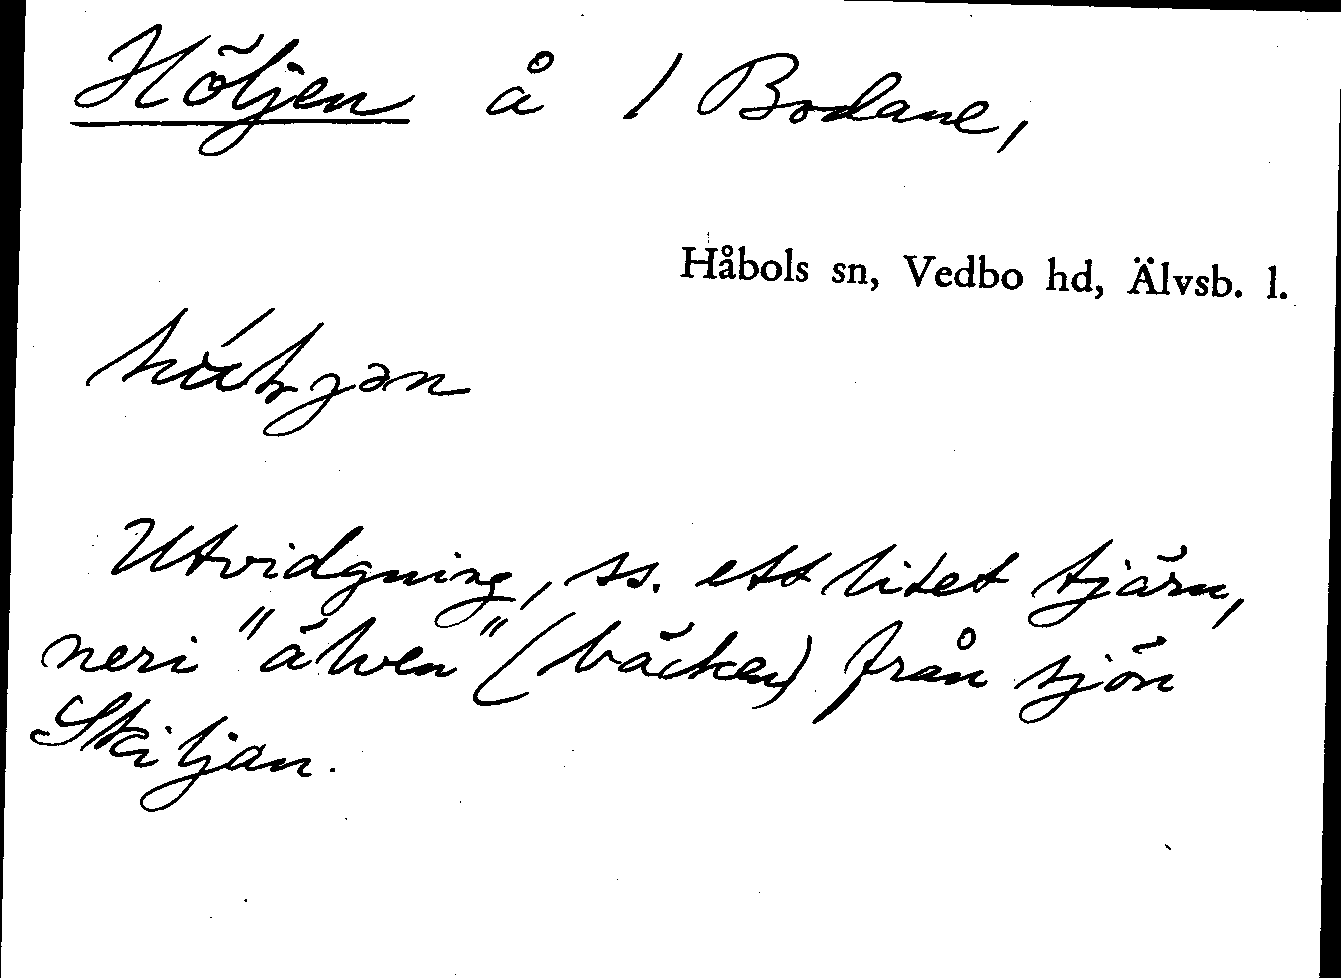 Höljen å 1 Bodane,
Håbols sn, Vedbo hd, Älvsb. l.
Utvidgning, ss. ett litet tjärn,
neri "älven" (bäcken) från sjön
Skiljan.